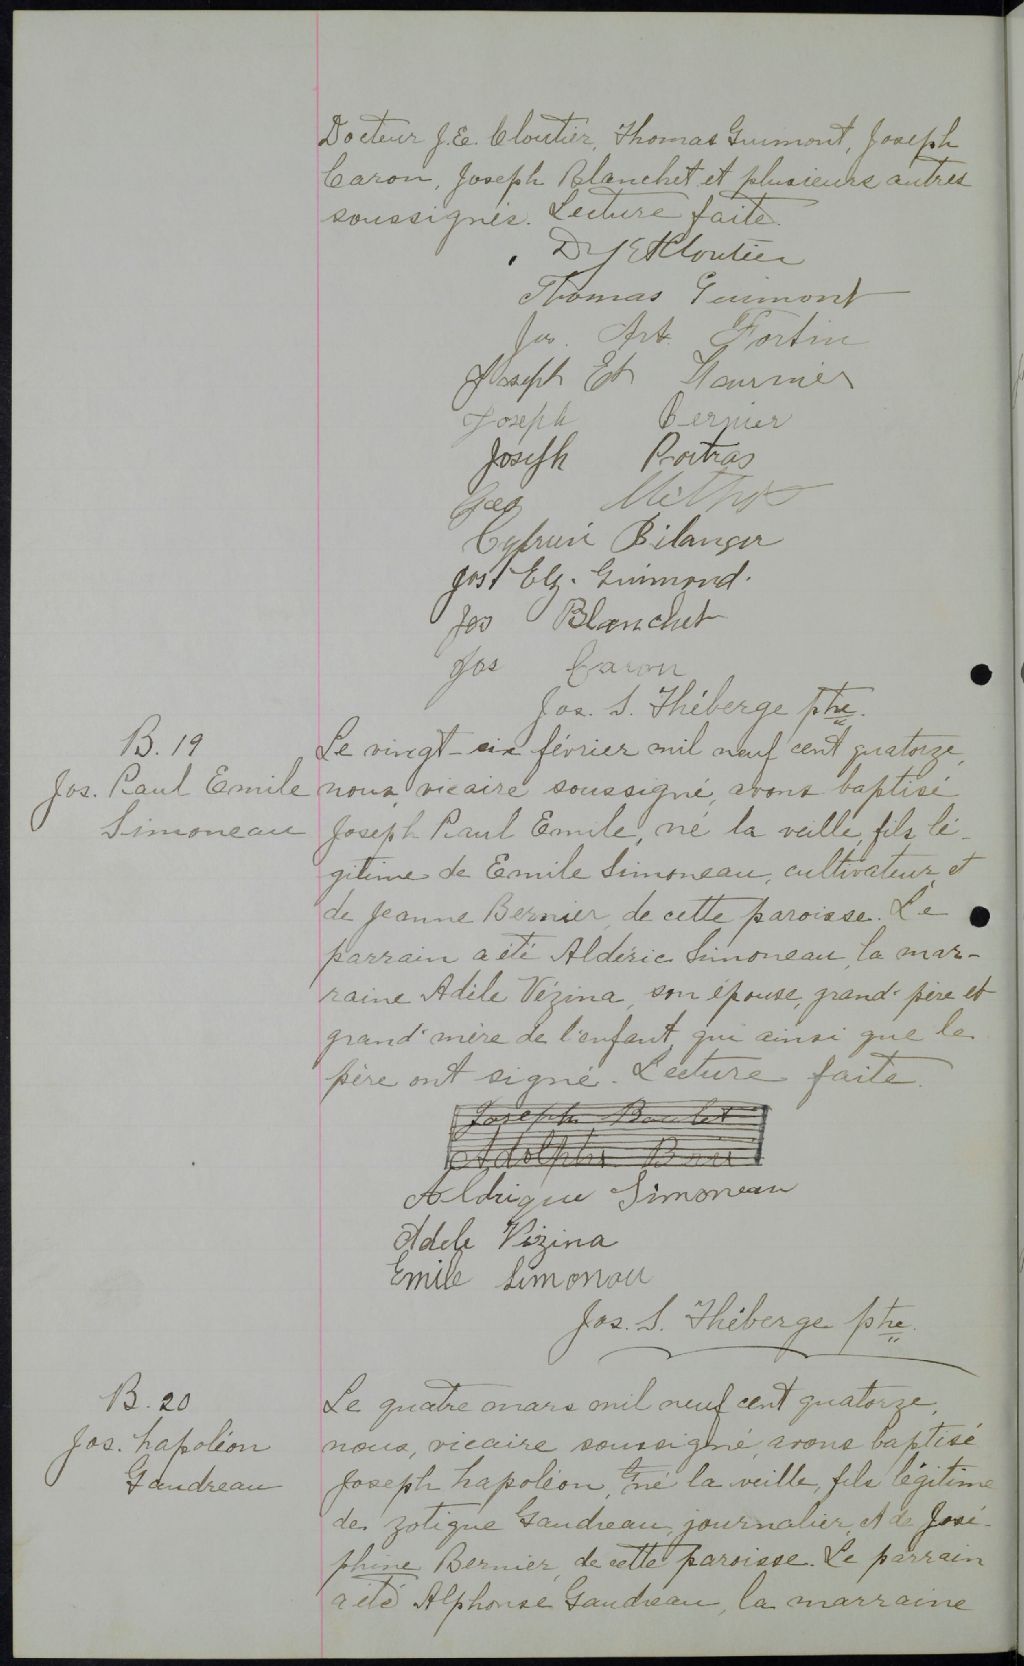 Docteur J.E. Cloutier, Thomas Guimont, Joseph
Caron, Joseph Blanchet et plusieurs autres
soussignés. Lecture faite.
Dr J E Cloutier
Thomas Guimont
Jos. Art. Fortin
Joseph Et Fournier
Joseph Bernier
Joseph Poitras
Geo Méthot
Cyprien Bélanger
Jos Elz. Guimond.
Jos Blanchet
Jos Caron
Jos. S. Théberge ptre.
B. 19
Jos. Paul Emile
Simoneau
Le vingt-six février mil neuf cent quatorze,
nous, vicaire soussigné, avons baptisé
Joseph Paul Emile, né la veille, fils lé-
gitime de Emile Simoneau, cultivateur, et
de Jeanne Bernier, de cette paroisse. Le
parrain a été Aldéric Simoneau, la mar-
raine Adèle Vézina, son épouse, grand'père et
grand'mère de l'enfant, qui ainsi que le
père ont signé. Lecture faite.
Joseph Boulet
Adolphe
Aldrique Simoneau
Adele Vézina
Emile Simonau
Jos. S. Théberge ptre.
B. 20
Jos. Napoléon
Gaudreau
Le quatre mars mil neuf cent quatorze,
nous, vicaire soussigné, avons baptisé
Joseph Napoléon, né la veille, fils légitime
de Zotique Gaudreau, journalier, et de José-
phine Bernier, de cette paroisse. Le parrain
a été Alphonse Gaudreau, la marraine